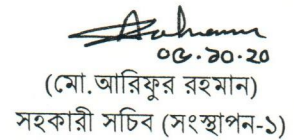 ০৫.১০.২০
(মো.আরিফুর রহমান)
সহকারী সচিব (সংস্থাপন-১)